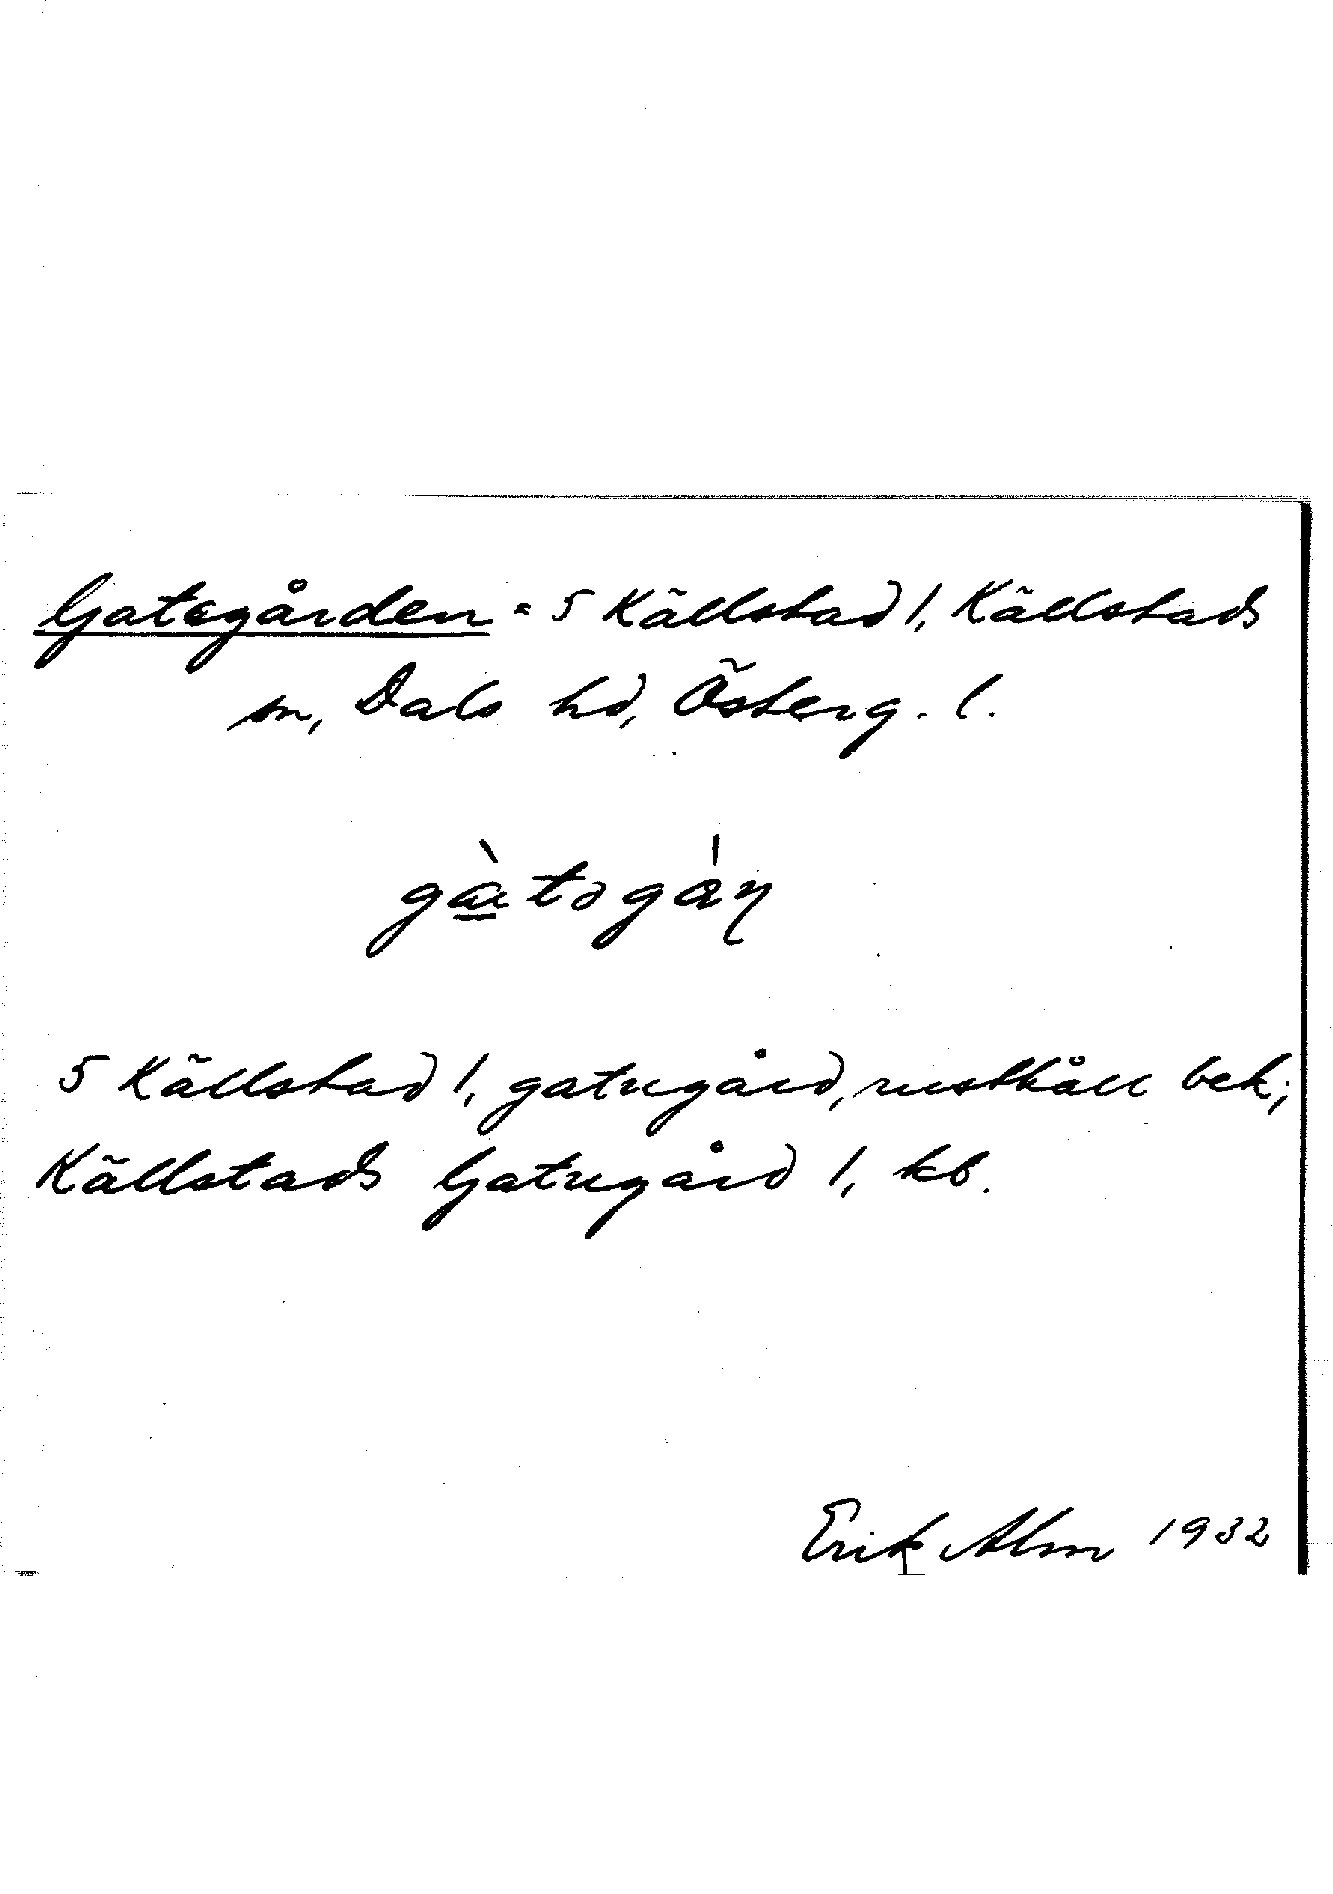 Gategården = 5 Källstad 1, Källstads
sn, Dals hd, Österg. l.
gàtəgån
5 Källstad 1, gatugård, rusthåll bek;
Källstads Gatugård 1, kb.
Erik Alm 1932